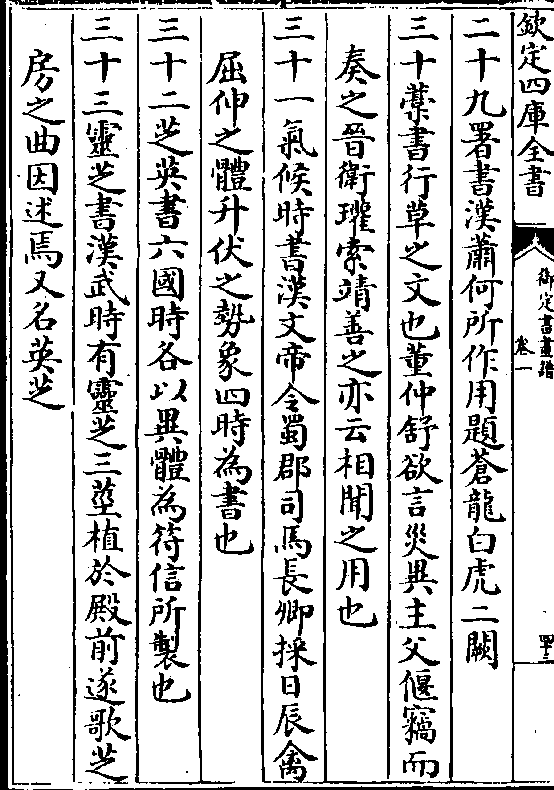 欽定四庫全書
御定書畫譜
卷一
二十九署書漢蕭何所作用題蒼龍白虎二闕
三十藁書行草之文也董仲舒欲言災異主父偃竊而
奏之晉衛瓘索靖善之亦云相聞之用也
三十一氣候時書漢文帝令蜀郡司馬長卿採日辰禽
屈伸之體升伏之勢象四時為書也
三十二芝英書六國時各以異體為符信所製也
三十三靈芝書漢武時有靈芝三莖植於殿前遂歌芝
房之曲因述焉又名英芝